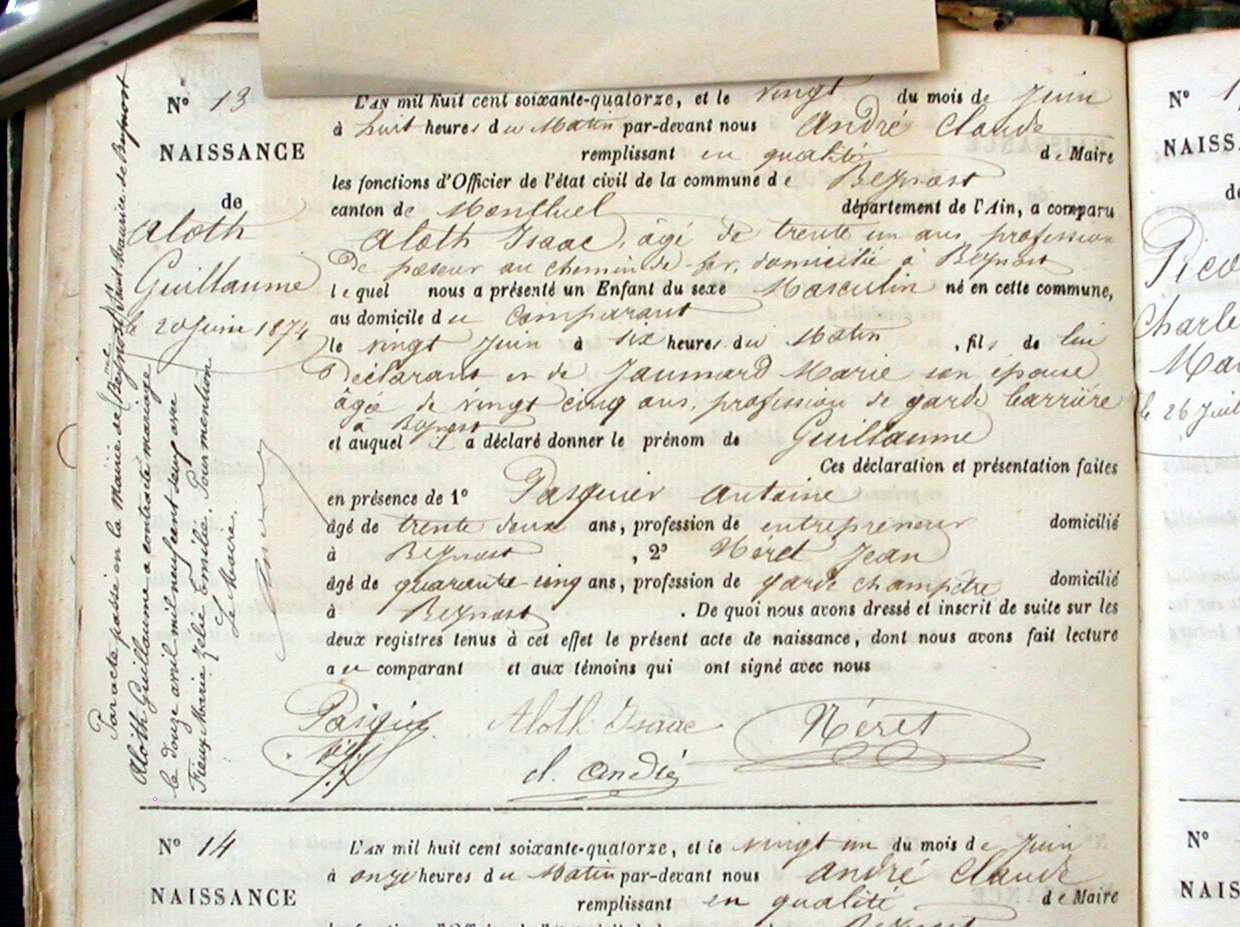 N° 13
NAISSANCE
de
Aloth
Guillaume
le 20 Juin 1874
L'AN mil huit cent soixante-quatorze, et le vingt du mois de Juin
à huit heures du Matin par-devant nous André Claude
remplissant en qualité de Maire
les fonctions d'Officier de l'état civil de la commune de Beynost
canton de Montluel département de l'Ain, a comparu
Aloth Isaac, âgé de trente un ans, profession
de poseur au chemin de fer, domicilié à Beynost
lequel nous a présenté un Enfant du sexe Masculin né en cette commune,
au domicile du comparant
le vingt Juin à six heures du Matin, fils de lui
Déclarant et de Jaumard Marie son épouse
âgée de vingt cinq ans, profession de garde barrière
à Beynost
et auquel il a déclaré donner le prénom de Guillaume
Ces déclaration et présentation faites
en présence de 1° Pasquier Antoine
âgé de trente deux ans, profession de entrepreneur domicilié
à Beynost, 2° Néret Jean
âgé de quarante cinq ans, profession de garde champêtre domicilié
à Beynost. De quoi nous avons dressé et inscrit de suite sur les
deux registres tenus à cet effet le présent acte de naissance, dont nous avons fait lecture
au comparant et aux témoins qui ont signé avec nous
Aloth Isaac Néret
cl. André
Par acte passé en la Mairie de Saint Maurice de Beynost
Aloth Guillaume a contracté mariage
le douze avril mil neuf cent neuf avec
Fieux Marie Zélie Emilie. Pour mention
Le Maire.
N° 14
NAISSANCE
L'AN mil huit cent soixante-quatorze, et le vingt un du mois de Juin
à onze heures du Matin par-devant nous André Claude
remplissant en qualité de Maire
Beynost
N° 1
NAISS
de
Charle
Ma
le 26 Juil
N°
NAIS